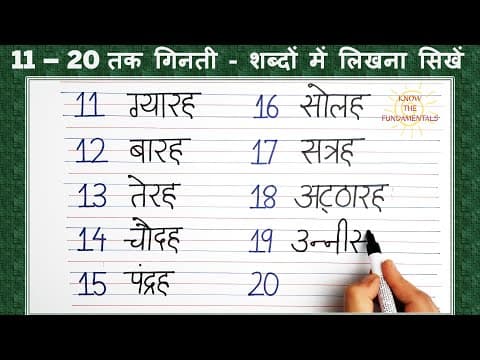 11 – 20 तक गिनती - शब्दों में लिखना सिखें
KNOW
THE
FUNDAMENTALS
11 ग्यारह
12 बारह
13 तेरह
14 चौदह
15 पंद्रह
16 सोलह
17 सत्रह
18 अट्ठारह
19 उन्नीस
20